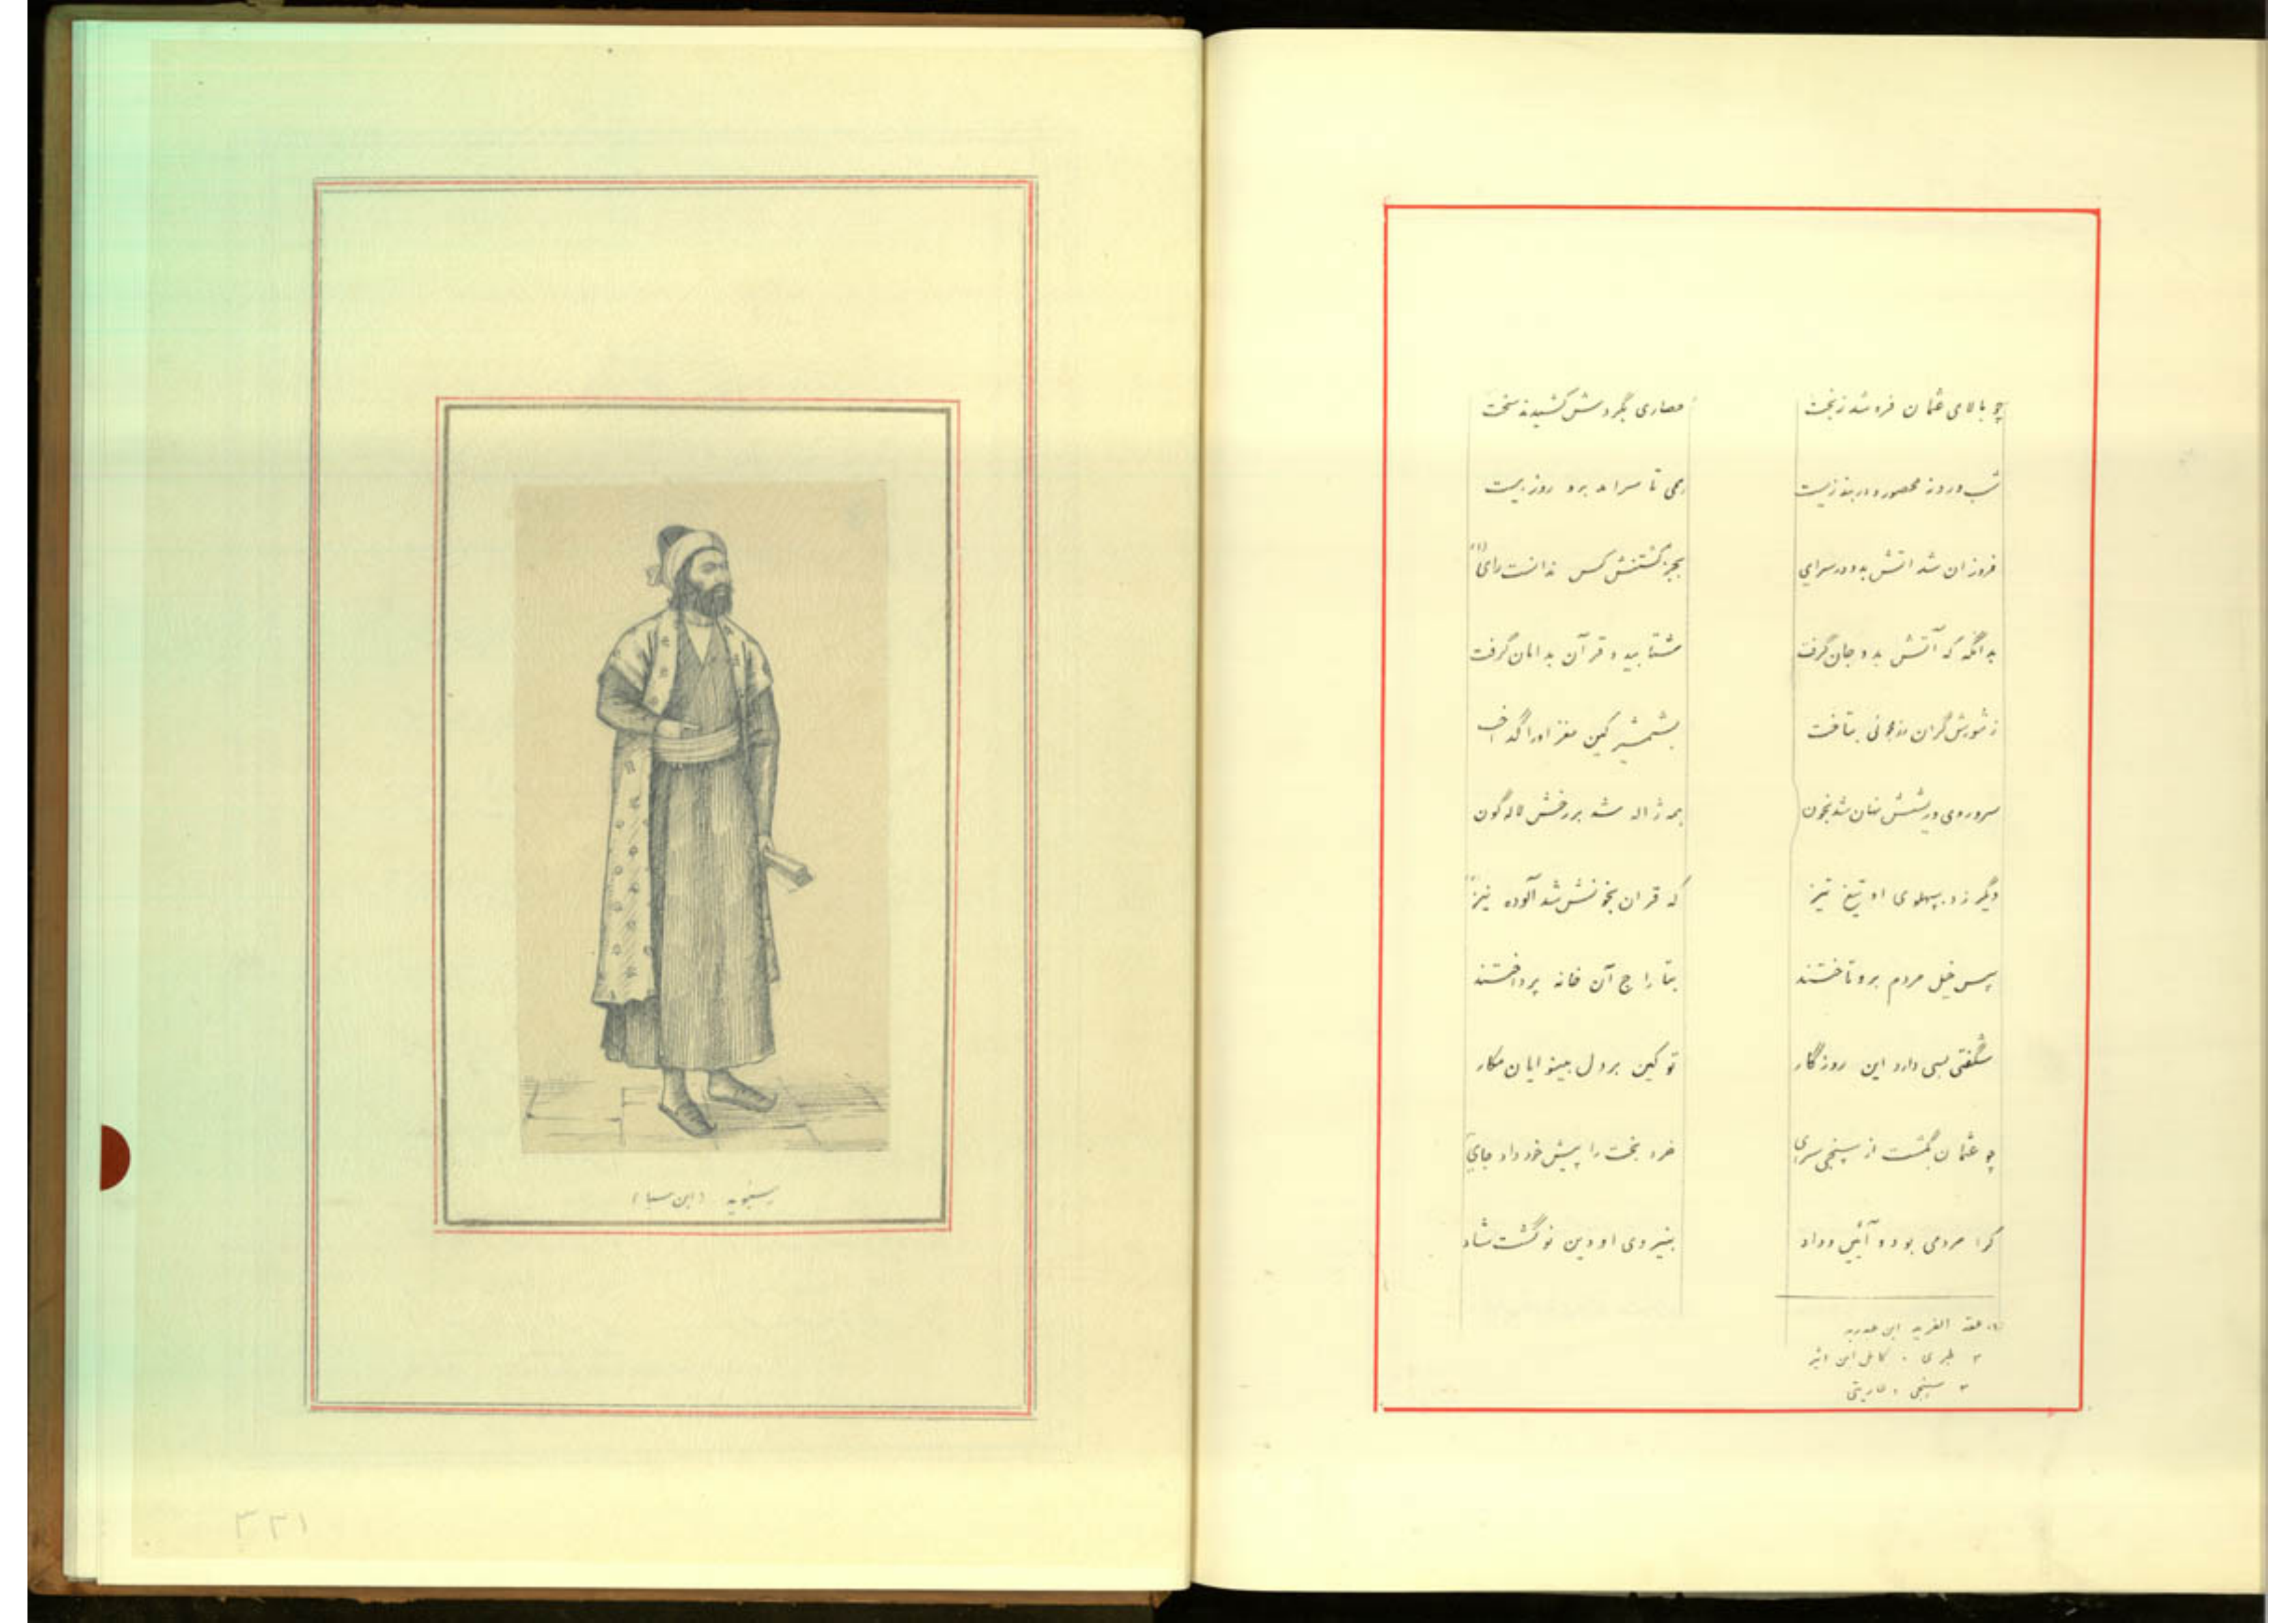 چو بالای عثمان فرو شد ز تخت حصاری بگردش کشیدند سخت
شب و روز محصور و در بند زیست همی تا سرامد برو روز بیست
فروزان شد اتش بدو در سرای بجز کشتنش کس ندانست رای (۱)
بدانگه که آتش بدو جان گرفت شتابید و قرآن بدامان گرفت
ز شورش گران بتافت بشمشیر کین مغز اورا
سر و روی و ریشش شد بخون همه ژاله شد بر رخش لاله گون
دیگر زد بپهلوی او تیغ تیز که قران بخونش شد آلوده نیز
پس خیل مردم برو تاختند بتاراج آن خانه پرداختند
شگفتی بسی دارد این روزگار تو کین بر دل مکار
چو عثمان گذشت از سپنجی سرای خرد بخت را پیش خود داد جای
کرا مردمی بود و آیین و داد بنیروی او دین نو گشت شاد
(۱) عقد الفرید ابن عبدربه
۲ طبری . کامل ابن اثیر
۳ سپنجی . عاریتی
(ابن سبا)
۱۲۳